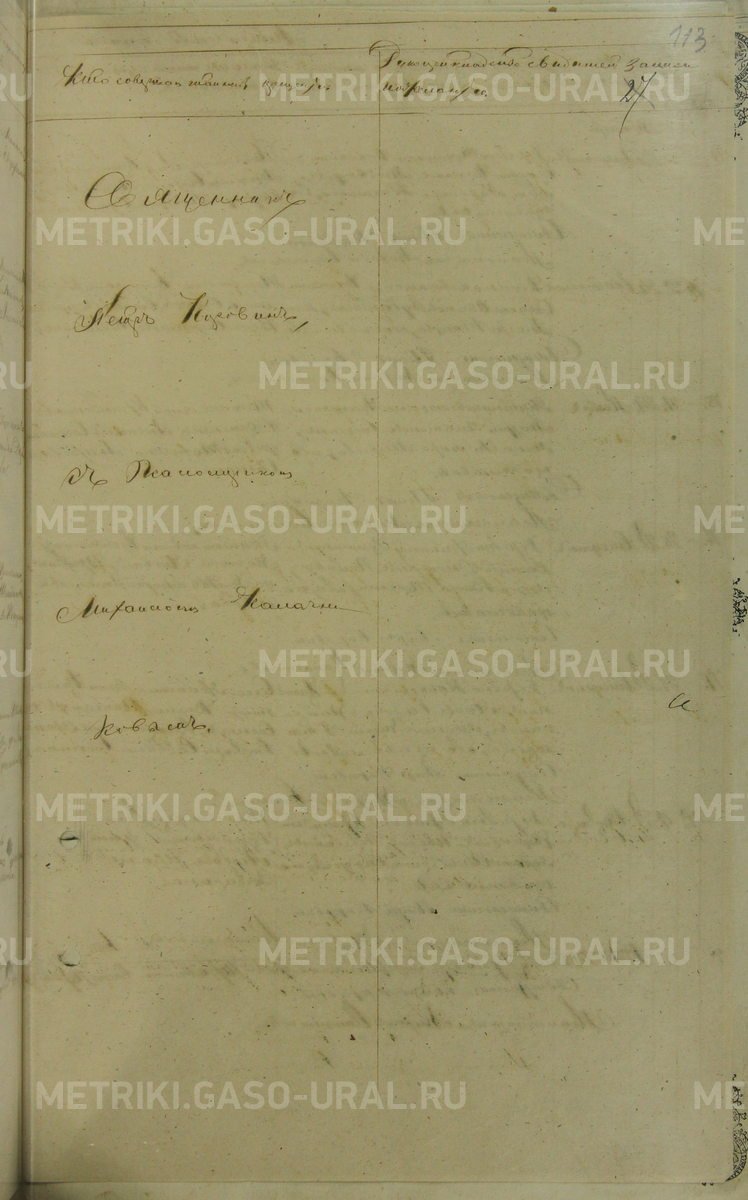 113
Кто совершал таинство крещенія
Рукоприкладство свидѣтелей записи
по желанію
27
Священникъ
Петръ Коровинъ,
съ Псаломщикомъ
Михаиломъ
METRIKI.GASO-URAL.RU